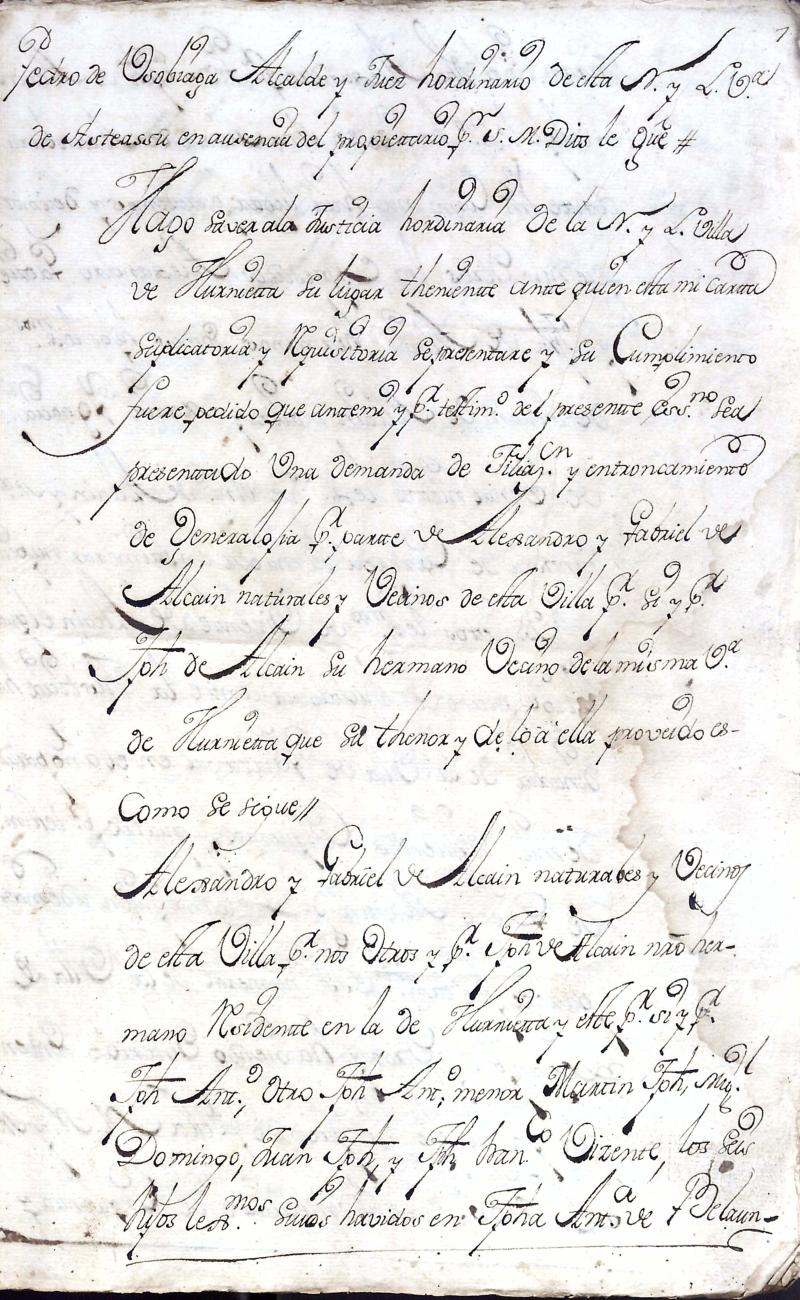 1
Pedro de Usobiaga Alcalde y Juez hordinario de esta N. y L. Vª
de Asteassu en ausencia del propiettario pr. S. M. Dios le gue #
Hago saver ala Justicia hordinaria de la N. y L. Villa
de Hurnietta su lugar thenientte antte quien esta mi Cartta
suplicatoria y Rquisitoria se presentare y su Cumplimiento
fuere pedido que antemi y pr. testimº del presentte Essno. sea
presenttado Una demanda de Filiaon. y entroncamiento
de Generalosia pr. partte de Alessandro y Gabriel de
Alcain naturales y Vecinos de esta Villa pr. si y pr.
Jph de Alcain su hermano Vecino de la misma Vª
de Hurnietta que su thenor y de lo a ella proveido es-
Como se sigue //
Alessandro y Gabriel de Alcain naturales y Vecinos
de esta Villa pr. nos Otros y pr. Jph de Alcain nro her-
mano Rsidente en la de Hurnietta y este pr. si y pr.
Jph Antº, Otro Jph Antº menor Martin Jph, Migl.
Domingo, Juan Jph, y Jph Franco Vizente, los seis
hijos lexmos. suios havidos en Jpha Antª de Belaun-